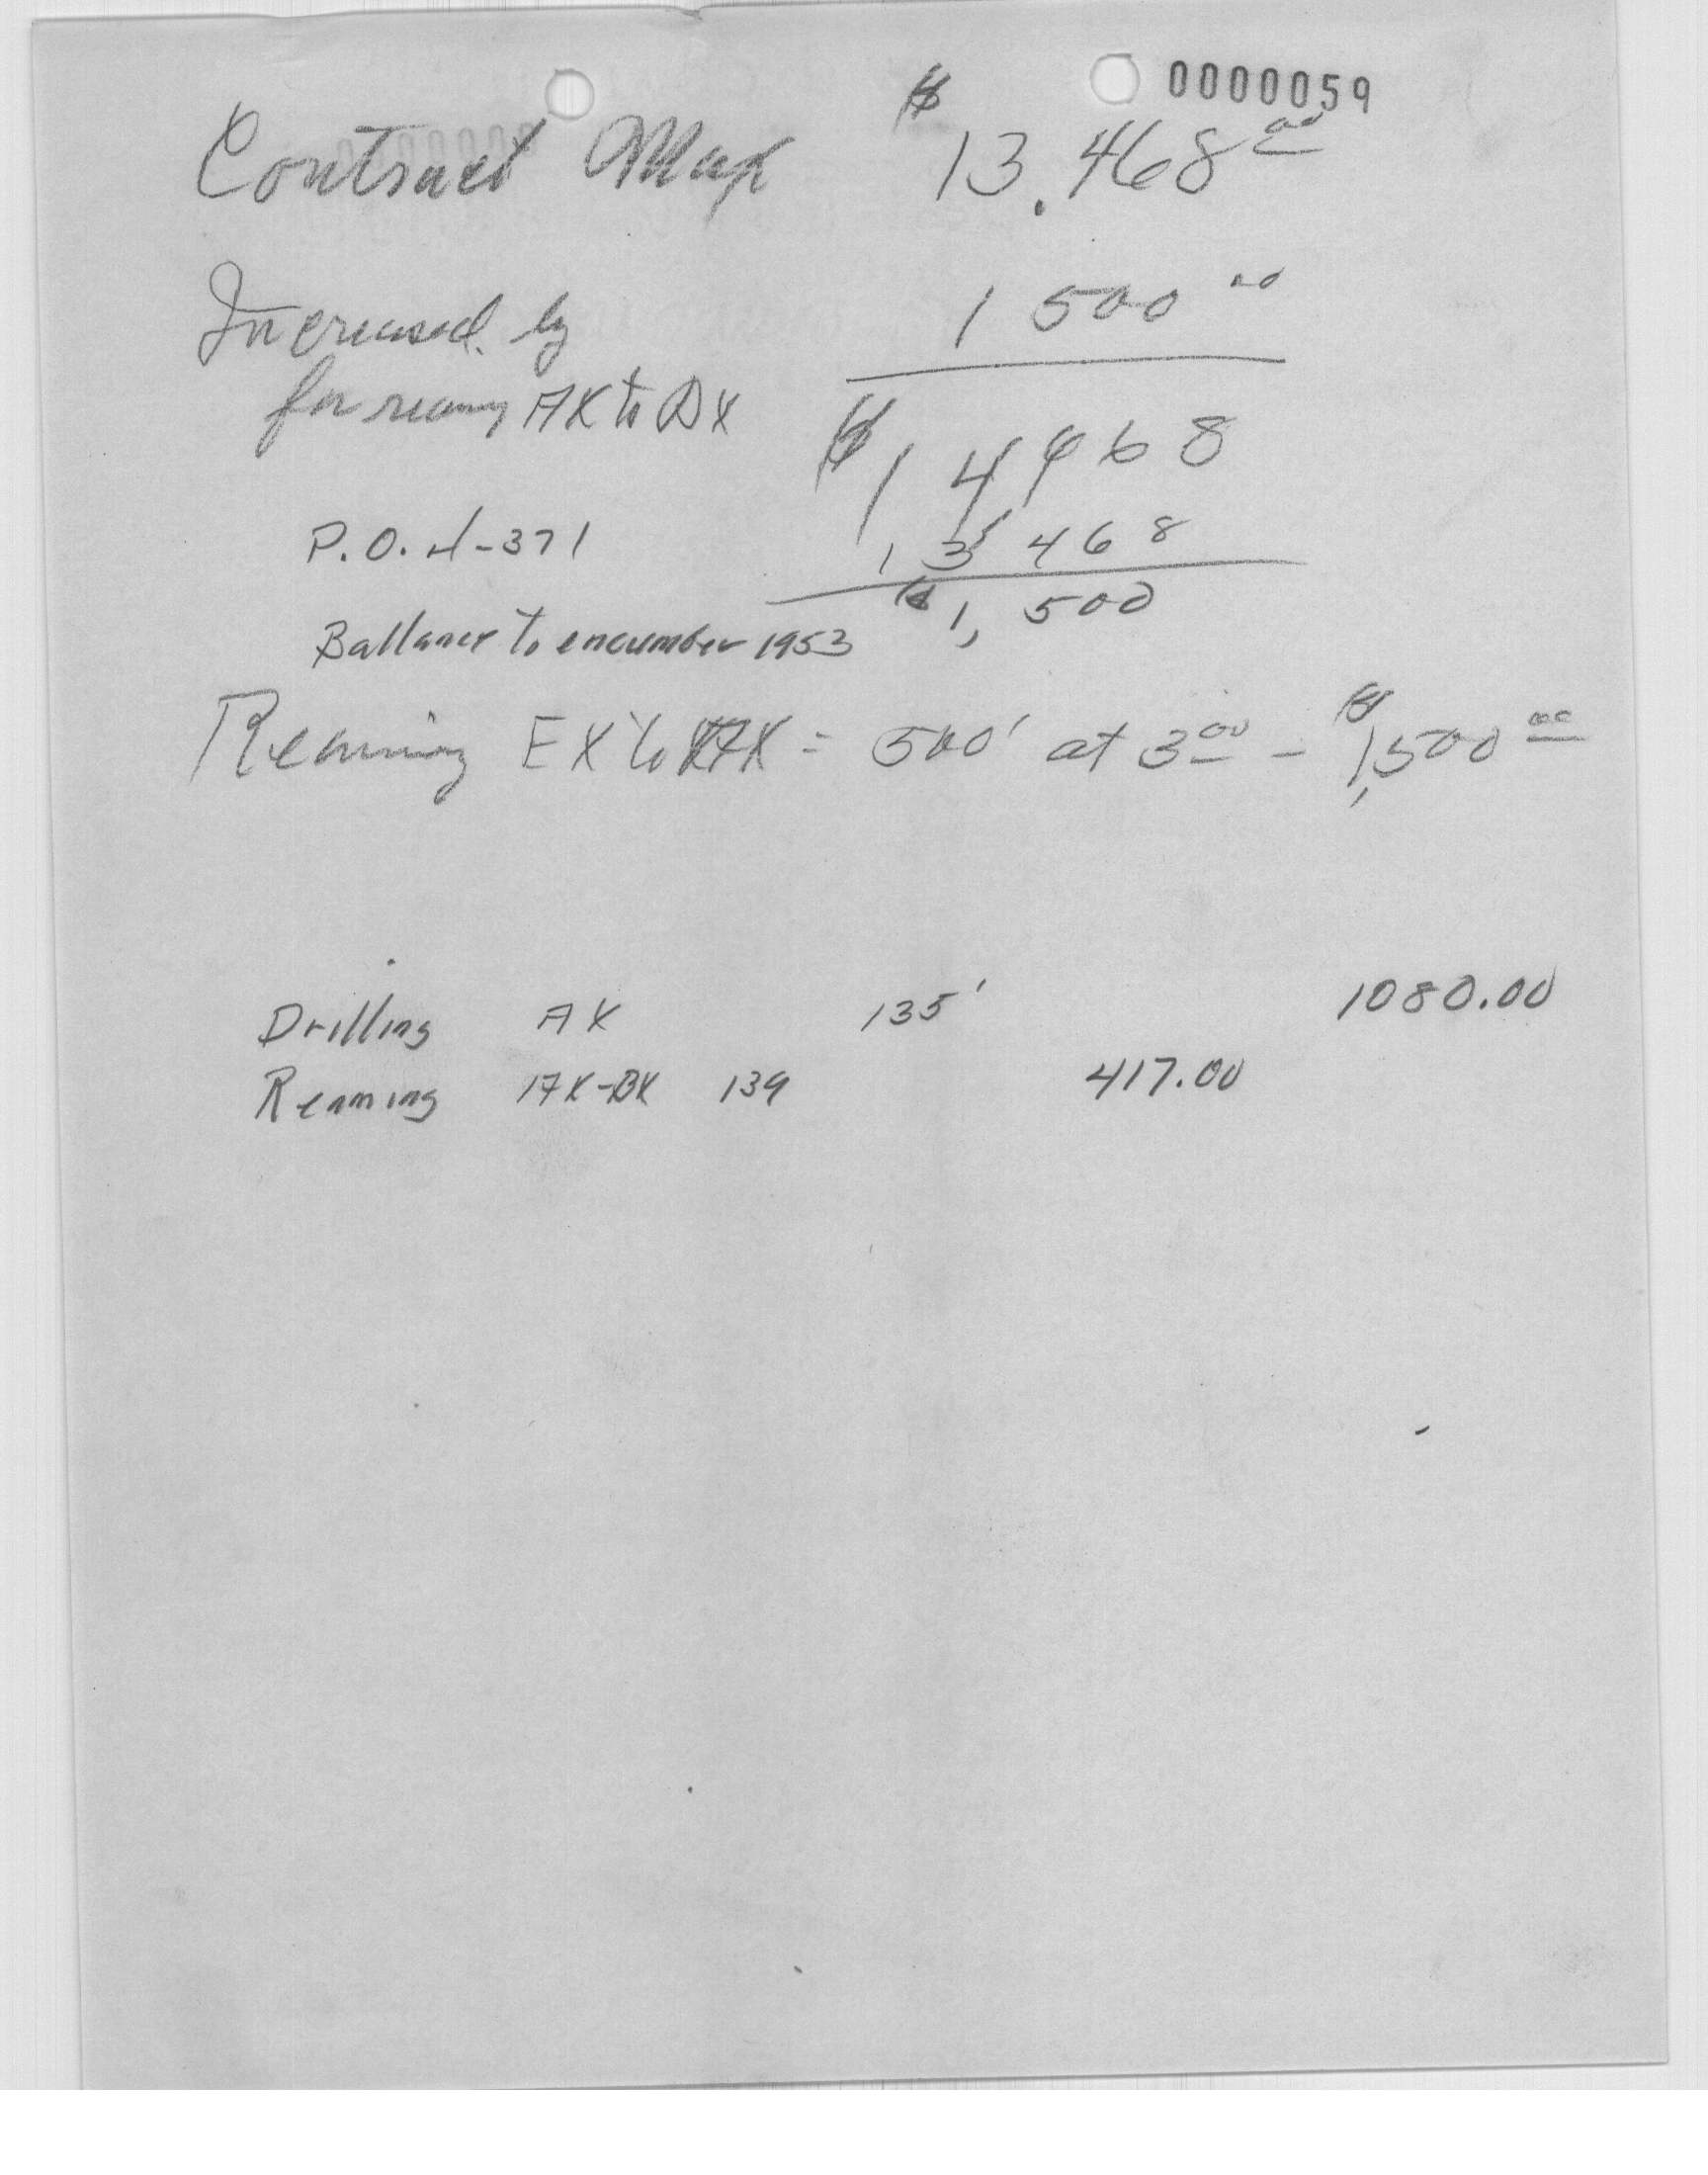 0000059
Contract Max $ 13,468.00
Increased by 1 500 00
for reaming AX to BX $ 14 468
P.O. 4-371 13 468
$ 1,500
Ballance to encumber 1953
Reaming EX to AX = 500' at 3 00 - $ 1,500 00
Drilling AX 135' 1080.00
Reaming AX-BX 139 417.00